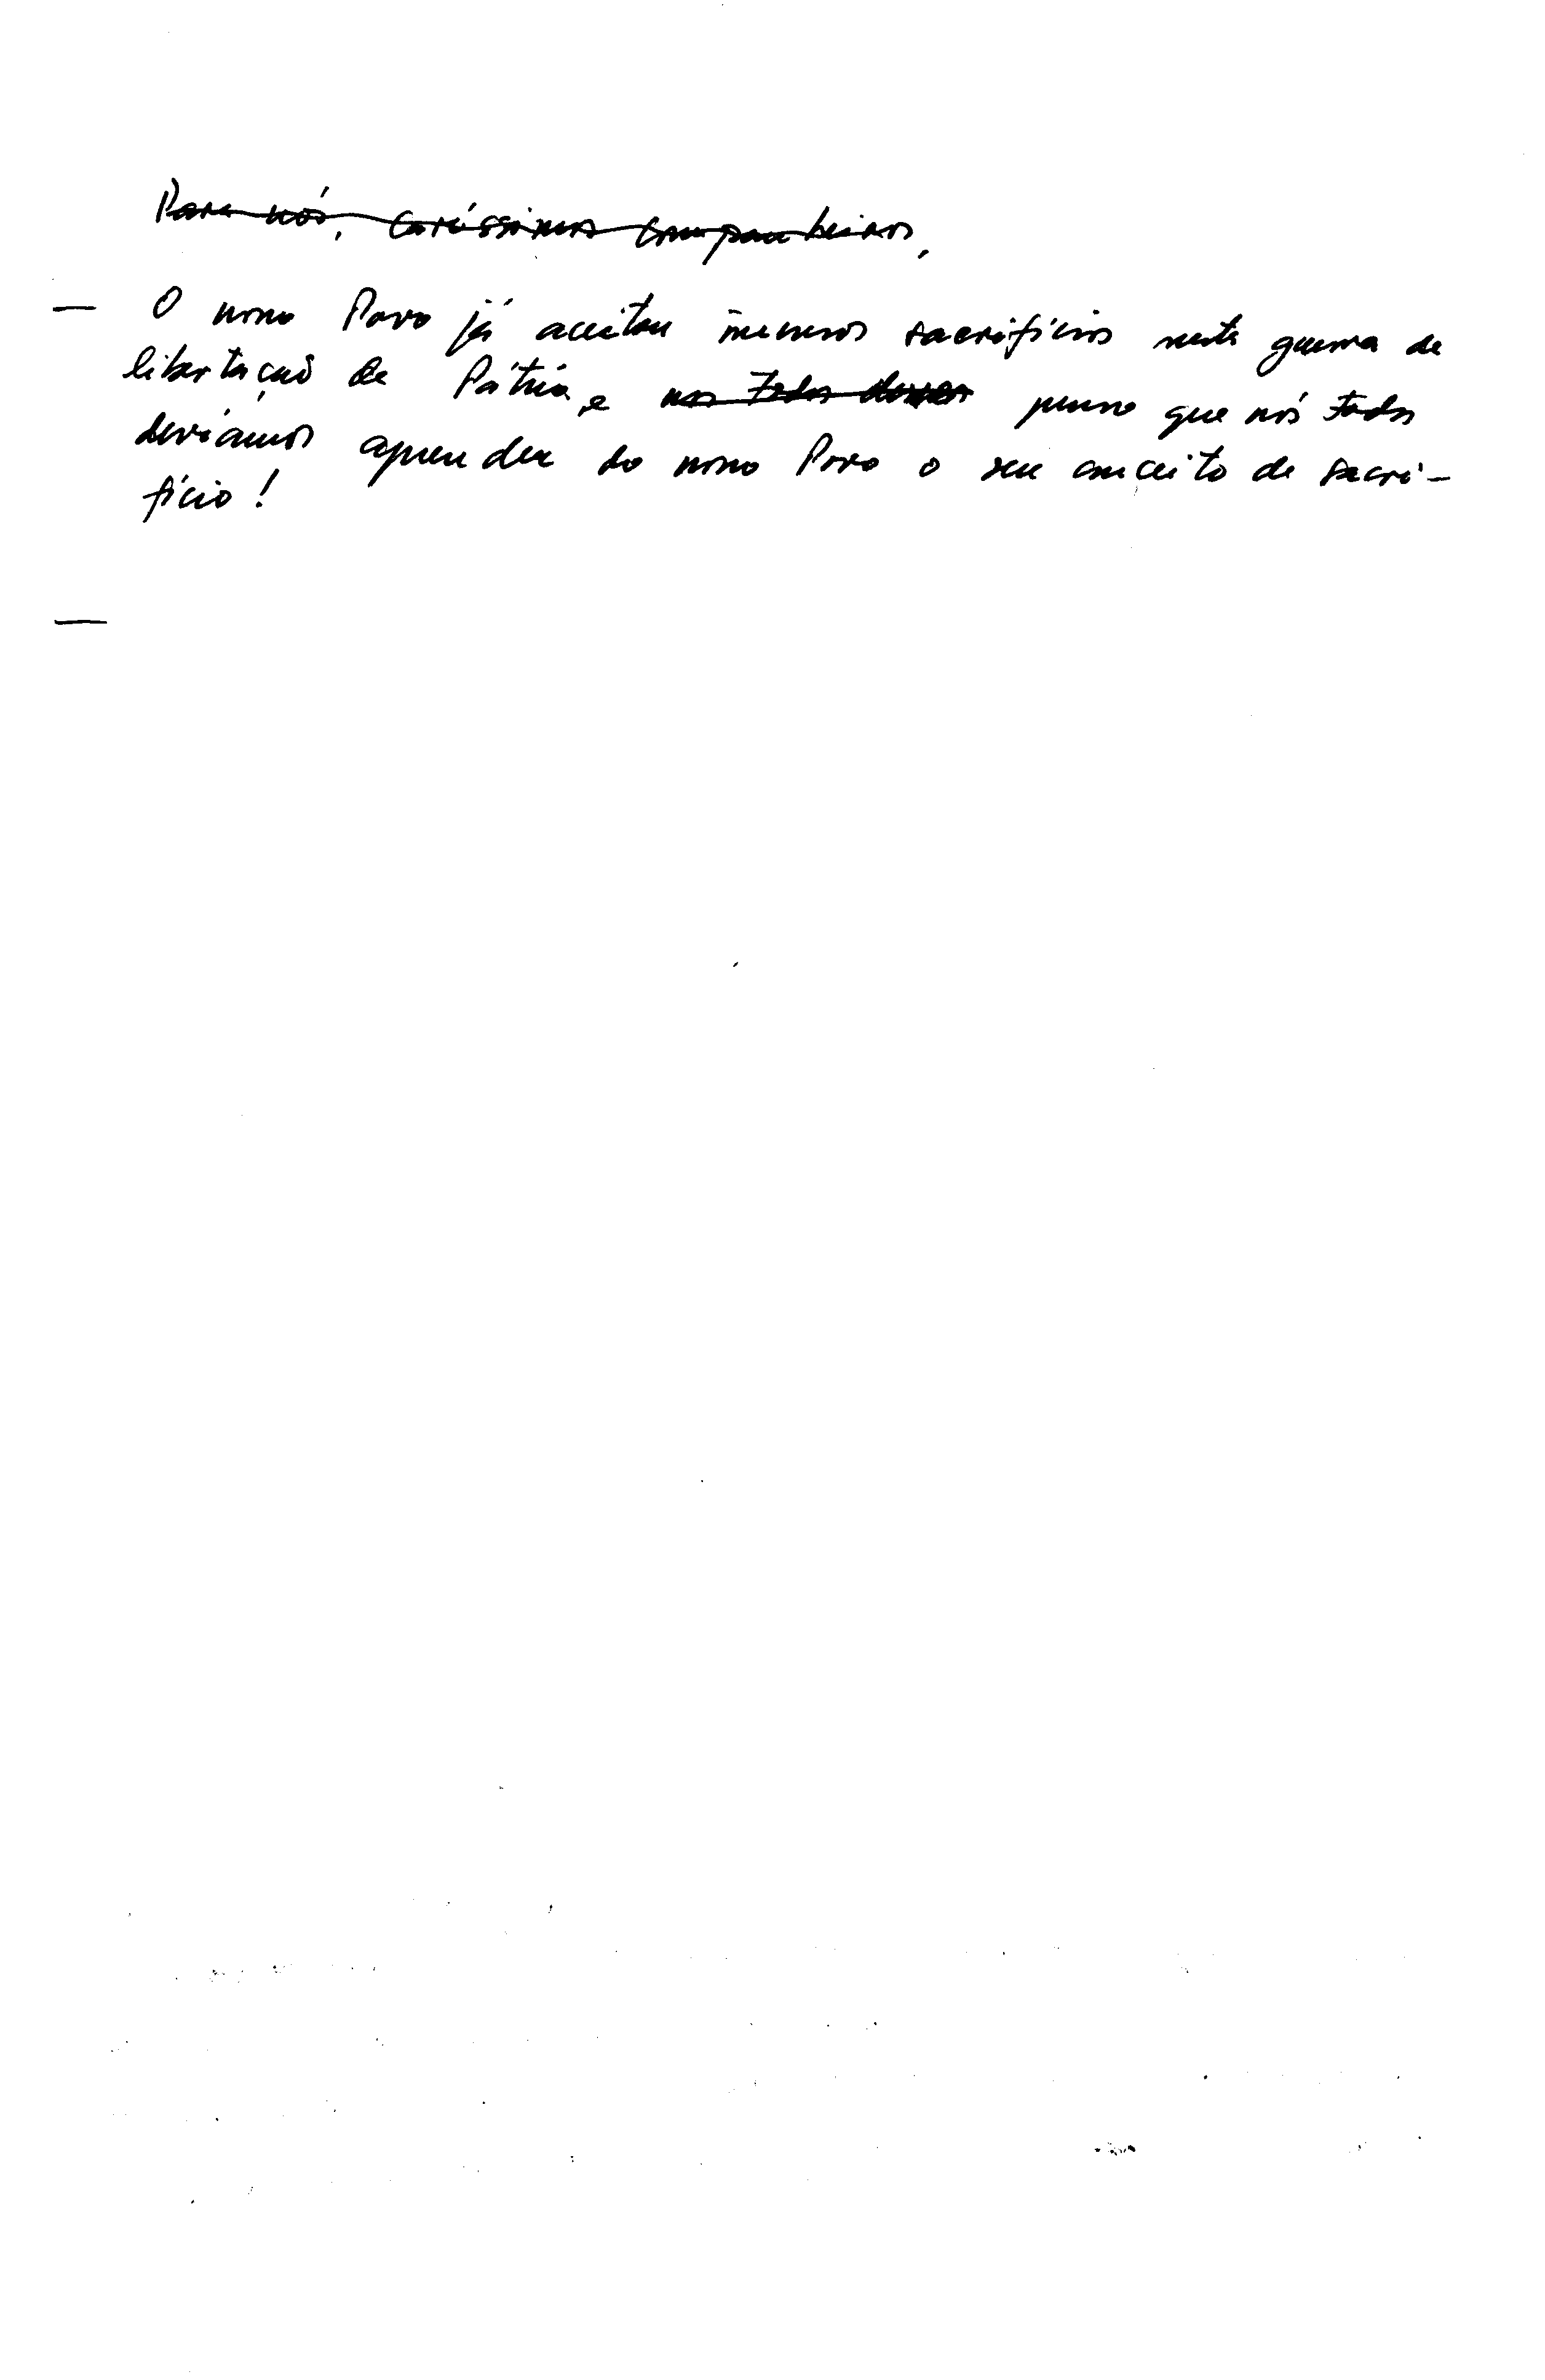 Para nós, caríssimos companheiros,
— O nosso Povo já aceitou imensos sacrifícios nesta guerra de
libertação da Pátria, e nos todos devem penso que nós todos
devíamos aprender do nosso Povo o seu conceito de sacri-
fício!
—